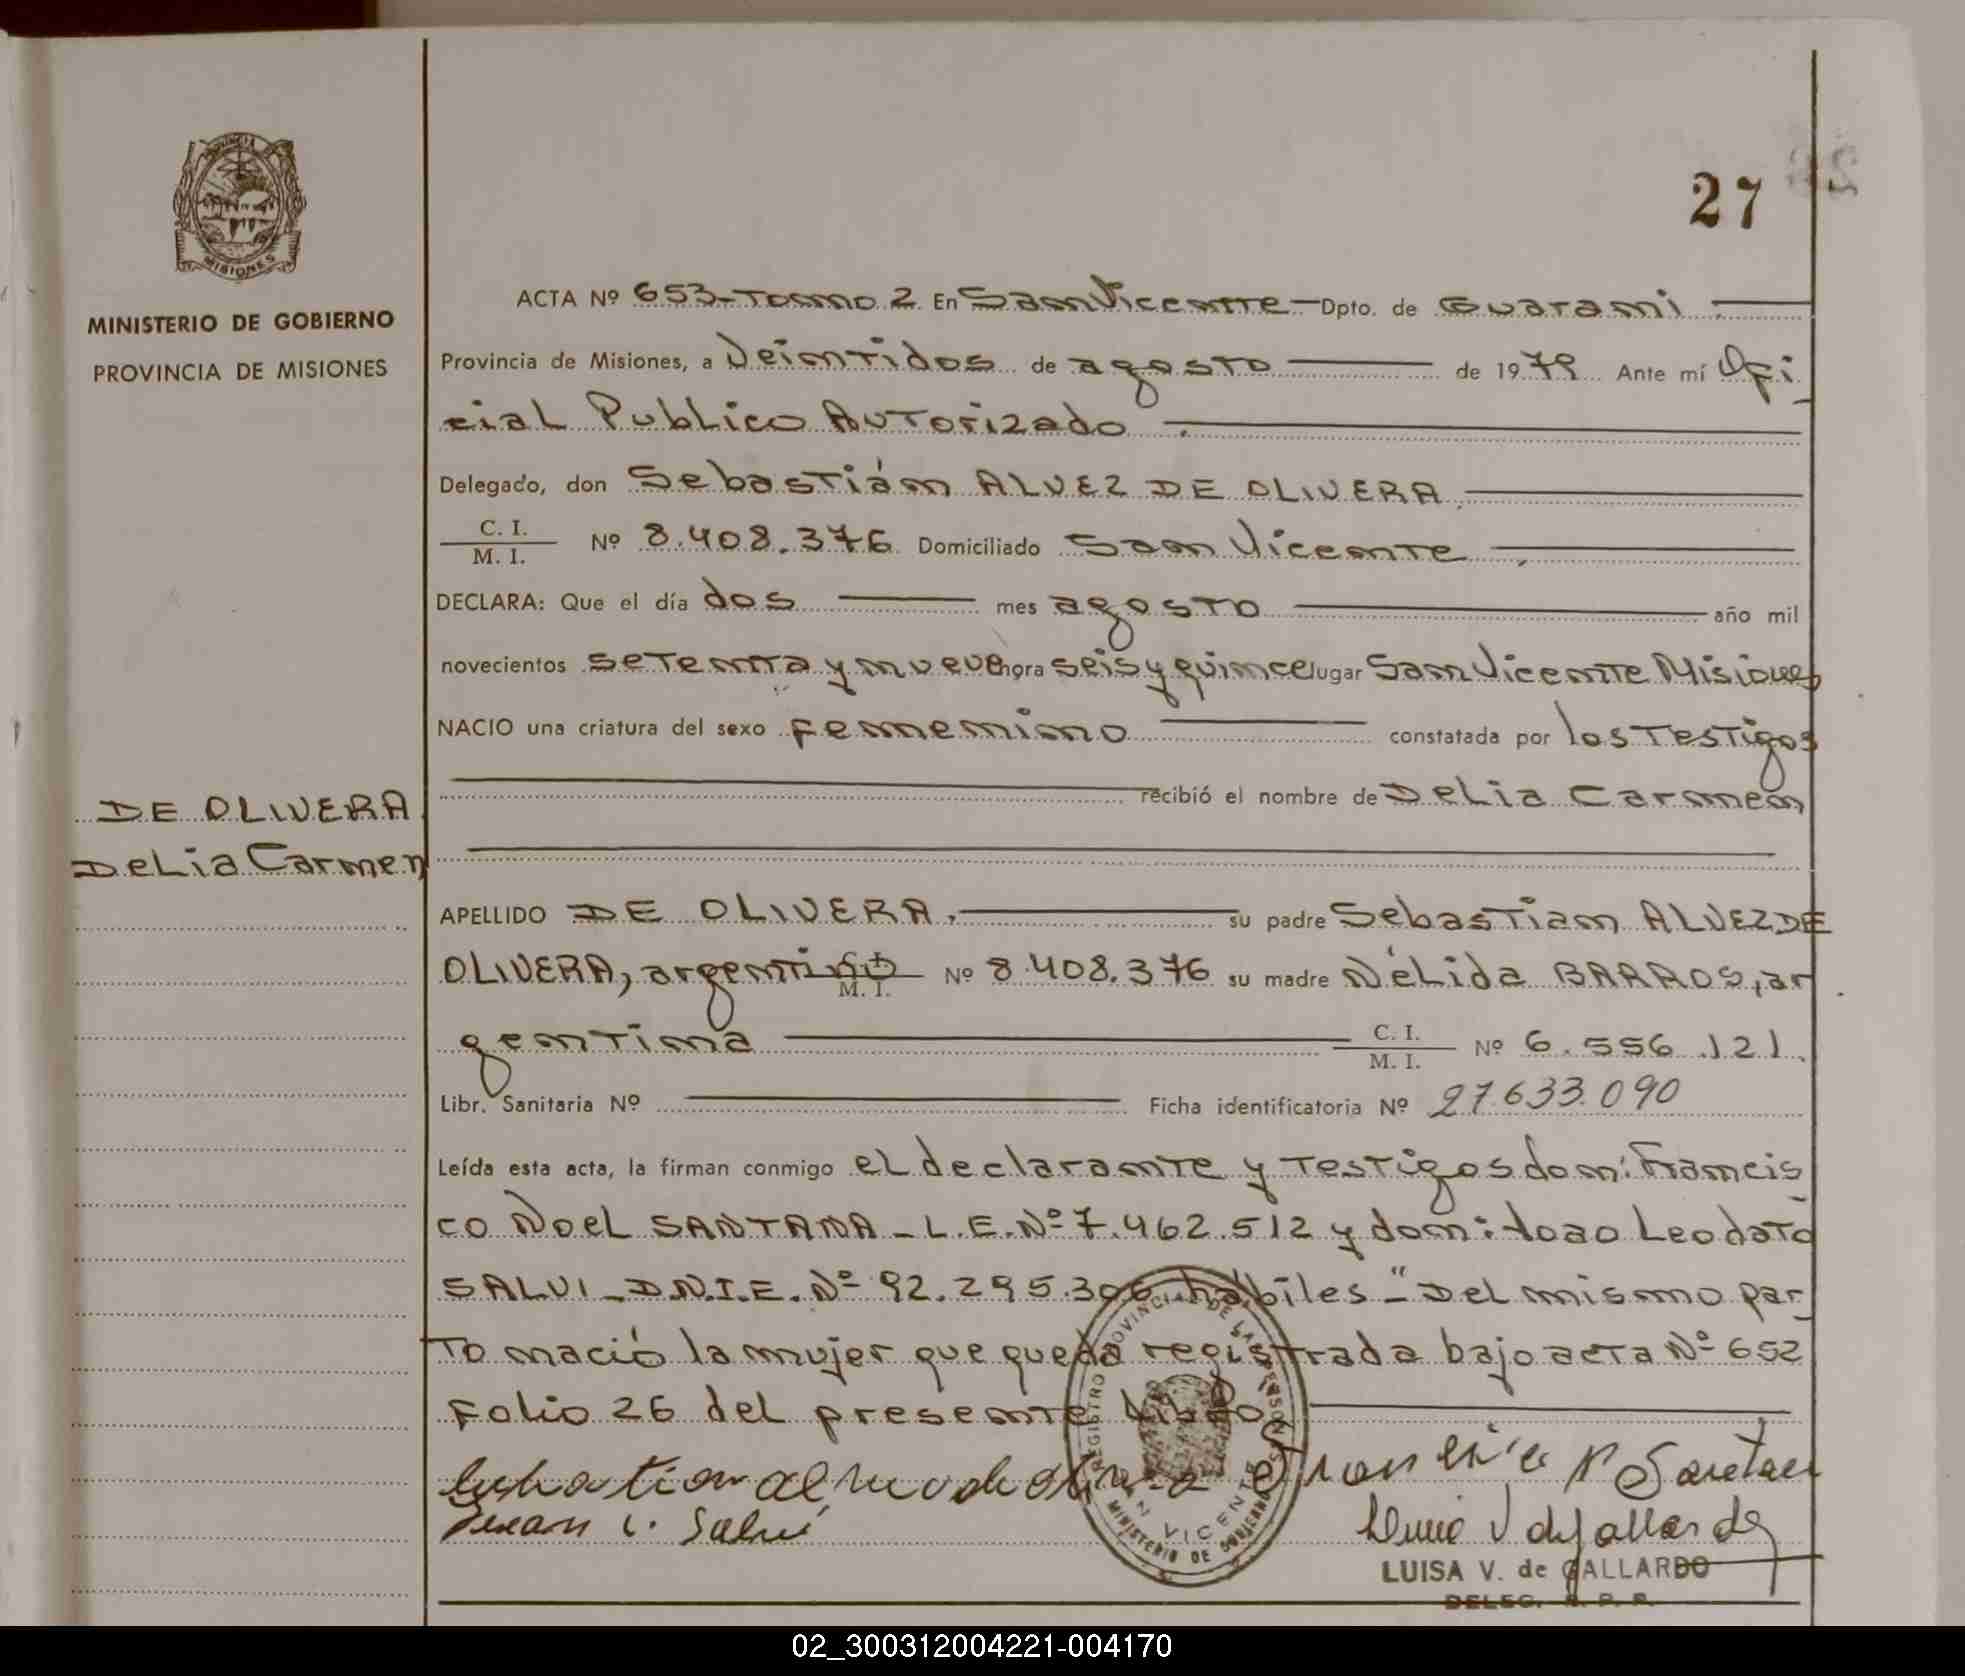 27
PROVINCIA DE
MISIONES
MINISTERIO DE GOBIERNO
PROVINCIA DE MISIONES
ACTA Nº 653-Tomo 2 En San Vicente Dpto. de Guarani
Provincia de Misiones, a Veintidos de agosto de 1979 Ante mí Ofi
cial Publico Autorizado
Delegado, don Sebastián ALVEZ DE OLIVERA
C. I.
M. I. Nº 8.408.376 Domiciliado San Vicente
DECLARA: Que el día dos mes agosto año mil
novecientos setenta y nueve hora seis y quince lugar San Vicente Misiones
NACIO una criatura del sexo femenino constatada por los Testigos
recibió el nombre de Delia Carmen
DE OLIVERA
Delia Carmen
APELLIDO DE OLIVERA. su padre Sebastian ALVEZ DE
OLIVERA, argentino M. I. Nº 8.408.376 su madre Nélida BARROS, ar
gentina C. I.
M. I. Nº 6.556.121.
Libr. Sanitaria Nº Ficha identificatoria Nº 27.633.090
Leída esta acta, la firman conmigo el declarante y Testigos don: Francis
co Noel SANTANA - L.E. Nº 7.462.512 y don: Joao Leodato
SALVI - D.N.I.E. Nº 92.295.306 hábiles - "Del mismo par
To nació la mujer que queda registrada bajo acta Nº 652
Folio 26 del presente Libro
REGISTRO PROVINCIAL DE LAS PERSONAS
SAN VICENTE
MINISTERIO DE GOBIERNO
LUISA V. de GALLARDO
DELEG. R. P. P.
02_300312004221-004170